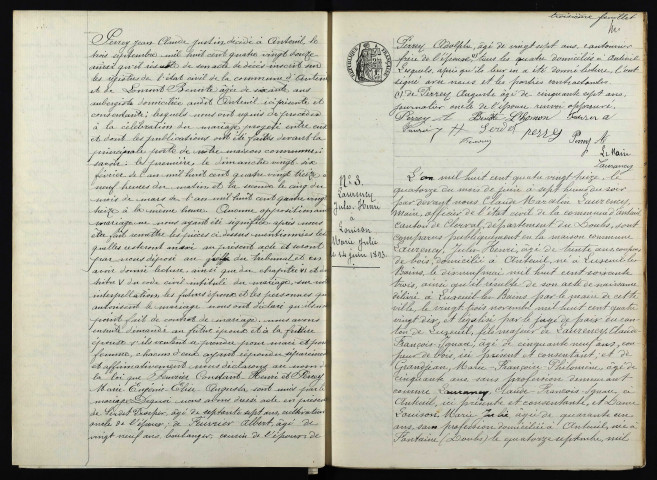 Perrey Jean Claude Justin décédé à Anteuil le
trois septembre mil huit cent quatre vingt douze
ainsi qu'il résulte de son acte de décès inscrit sur
les registres de l'état civil de la commune d'Anteuil
et de Domont Benoîte âgée de soixante ans
domiciliée audit Anteuil ici présente et
consentante; lesquels nous ont requis de procéder
à la célébration du mariage projeté entre eux
et dont les publications ont été faites devant la
principale porte de notre maison commune;
savoir: la première, le dimanche vingt six
février de l'an mil huit cent quatre vingt treize à
neuf heures du matin et la seconde le cinq du
mois de mars de l'an mil huit cent quatre vingt
treize à la même heure. Aucune opposition au
mariage ne nous ayant été signifiée, après nous
être fait remettre les pièces ci dessus mentionnées les
quelles resteront au présent acte et seront
par nous déposé au greffe du tribunal et en
avoir donné lecture, ainsi que du chapitre VI du
titre V du code civil intitulé du mariage, sur notre
interpellation, les futurs époux et les personnes qui
autorisent le mariage nous ont déclaré qu'il n'a
point fait de contrat de mariage, nous avons
ensuite demandé au futur époux et à la future
épouse s'ils veulent se prendre pour mari et pour
femme, chacun d'eux ayant répondu séparément
et affirmativement nous déclarons au nom de
la loi que Constant Henri et Perrey
Marie Eugénie Elise sont unis par le
mariage. Depuis nous avons dressé acte en présence
de Prosper âgé de septante sept ans cultivateur
oncle de l'époux, de Feuvrier Albert, âgé de
vingt neuf ans boulanger, cousin de l'époux; de
troisième feuillet
Perrey Adolphe, âgé de vingt sept ans cantonnier
frère de l'épouse, tous les quatre domiciliés à Anteuil
Lesquels, après qu'il leur en a été donné lecture, l'ont
signé avec nous et les parties contractantes
(1) de Perrey Auguste âgé de cinquante sept ans,
journalier oncle de l'épouse renvoi approuvé.
Perrey
Perrey A
Le Maire
Laurency
N° 3.
Laurency
Jules Henri
à
Louison
Marie Julie
le 14 juin 1893.
L'an mil huit cent quatre vingt treize le
quatorze du mois de juin à sept heures du soir
par devant nous Claude Laurency,
Maire, officier de l'état civil de la commune d'Anteuil
canton de Clerval, département du Doubs, sont
comparus publiquement en la maison commune
Laurency, Jules Henri, âgé de trente ans coupeur
de bois, domicilié à Anteuil, né à Luxeuil les
Bains, le dix neuf mai mil huit cent soixante
trois, ainsi qu'il résulte de son acte de naissance
délivré à Luxeuil les Bains par le maire de cette
ville, le vingt trois novembre mil huit cent quatre
vingt dix, et légalisé par le juge de paix du can
ton de Luxeuil, fils majeur de Laurency Claude
François Ignace, âgé de cinquante neuf ans, cou
peur de bois, ici présent et consentant; et de
Grandjean Marie Françoise Philomène, âgée de
cinquante ans sans profession demeurant
comme Laurency Claude François Ignace, à
Anteuil, ici présente et consentante; et Dame
Louison Marie Julie âgée de quarante un
ans sans profession domiciliée à Anteuil, née à
Fontaine (Doubs) le quatorze septembre mil